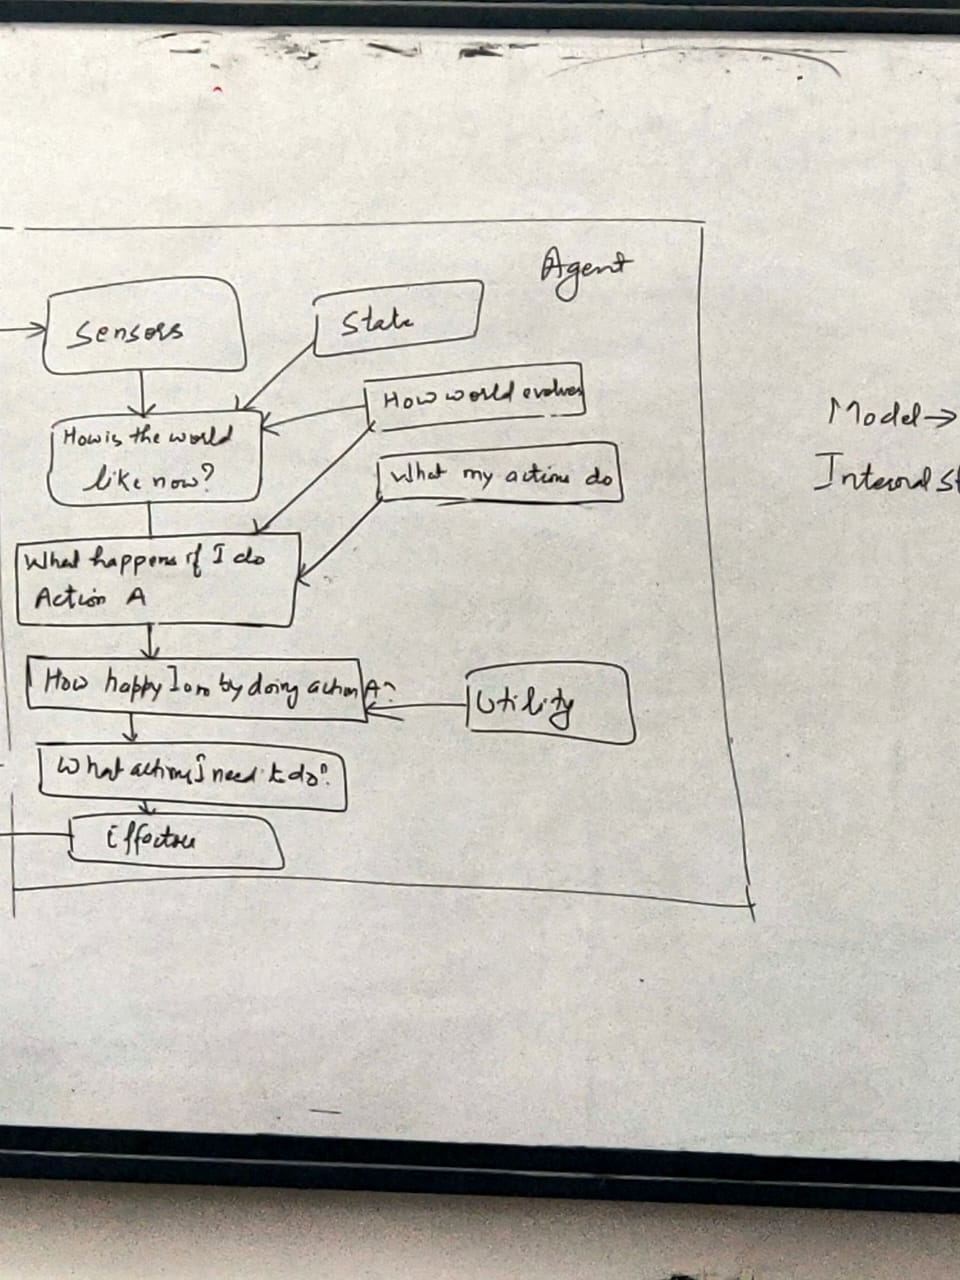 Agent
Sensors
State
How world evolves
How is the world
like now?
What my actions do
What happens if I do
Action A
How happy I am by doing action A?
Utility
What actions I need to do?
Effectors
Model →
Internal st